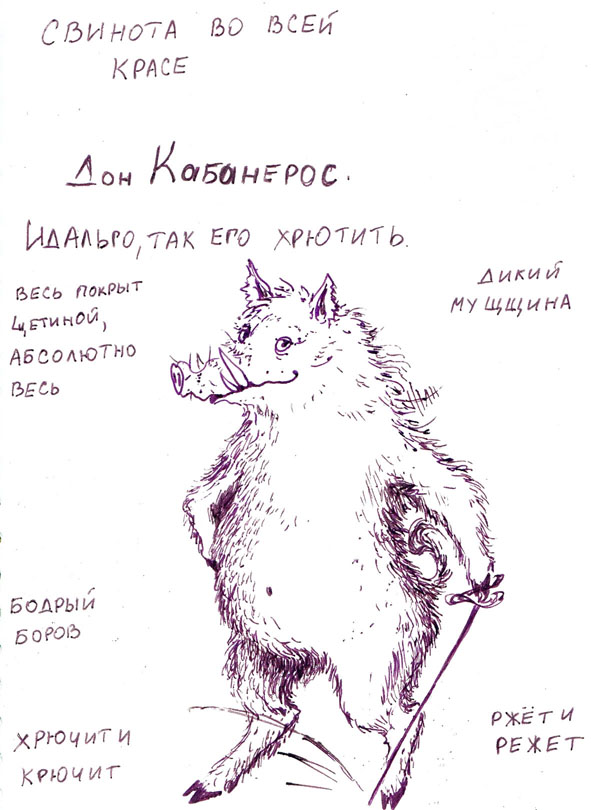 СВИНОТА ВО ВСЕЙ
КРАСЕ
Дон КАБАНЕРОС.
ИДАЛЬГО, ТАК ЕГО ХРЮТИТЬ.
ВЕСЬ ПОКРЫТ
ЩЕТИНОЙ,
АБСОЛЮТНО
ВЕСЬ
ДИКИЙ
МУЩЩИНА
БОДРЫЙ
БОРОВ
ХРЮЧИТ И
КРЮЧИТ
РЖЁТ И
РЕЖЕТ